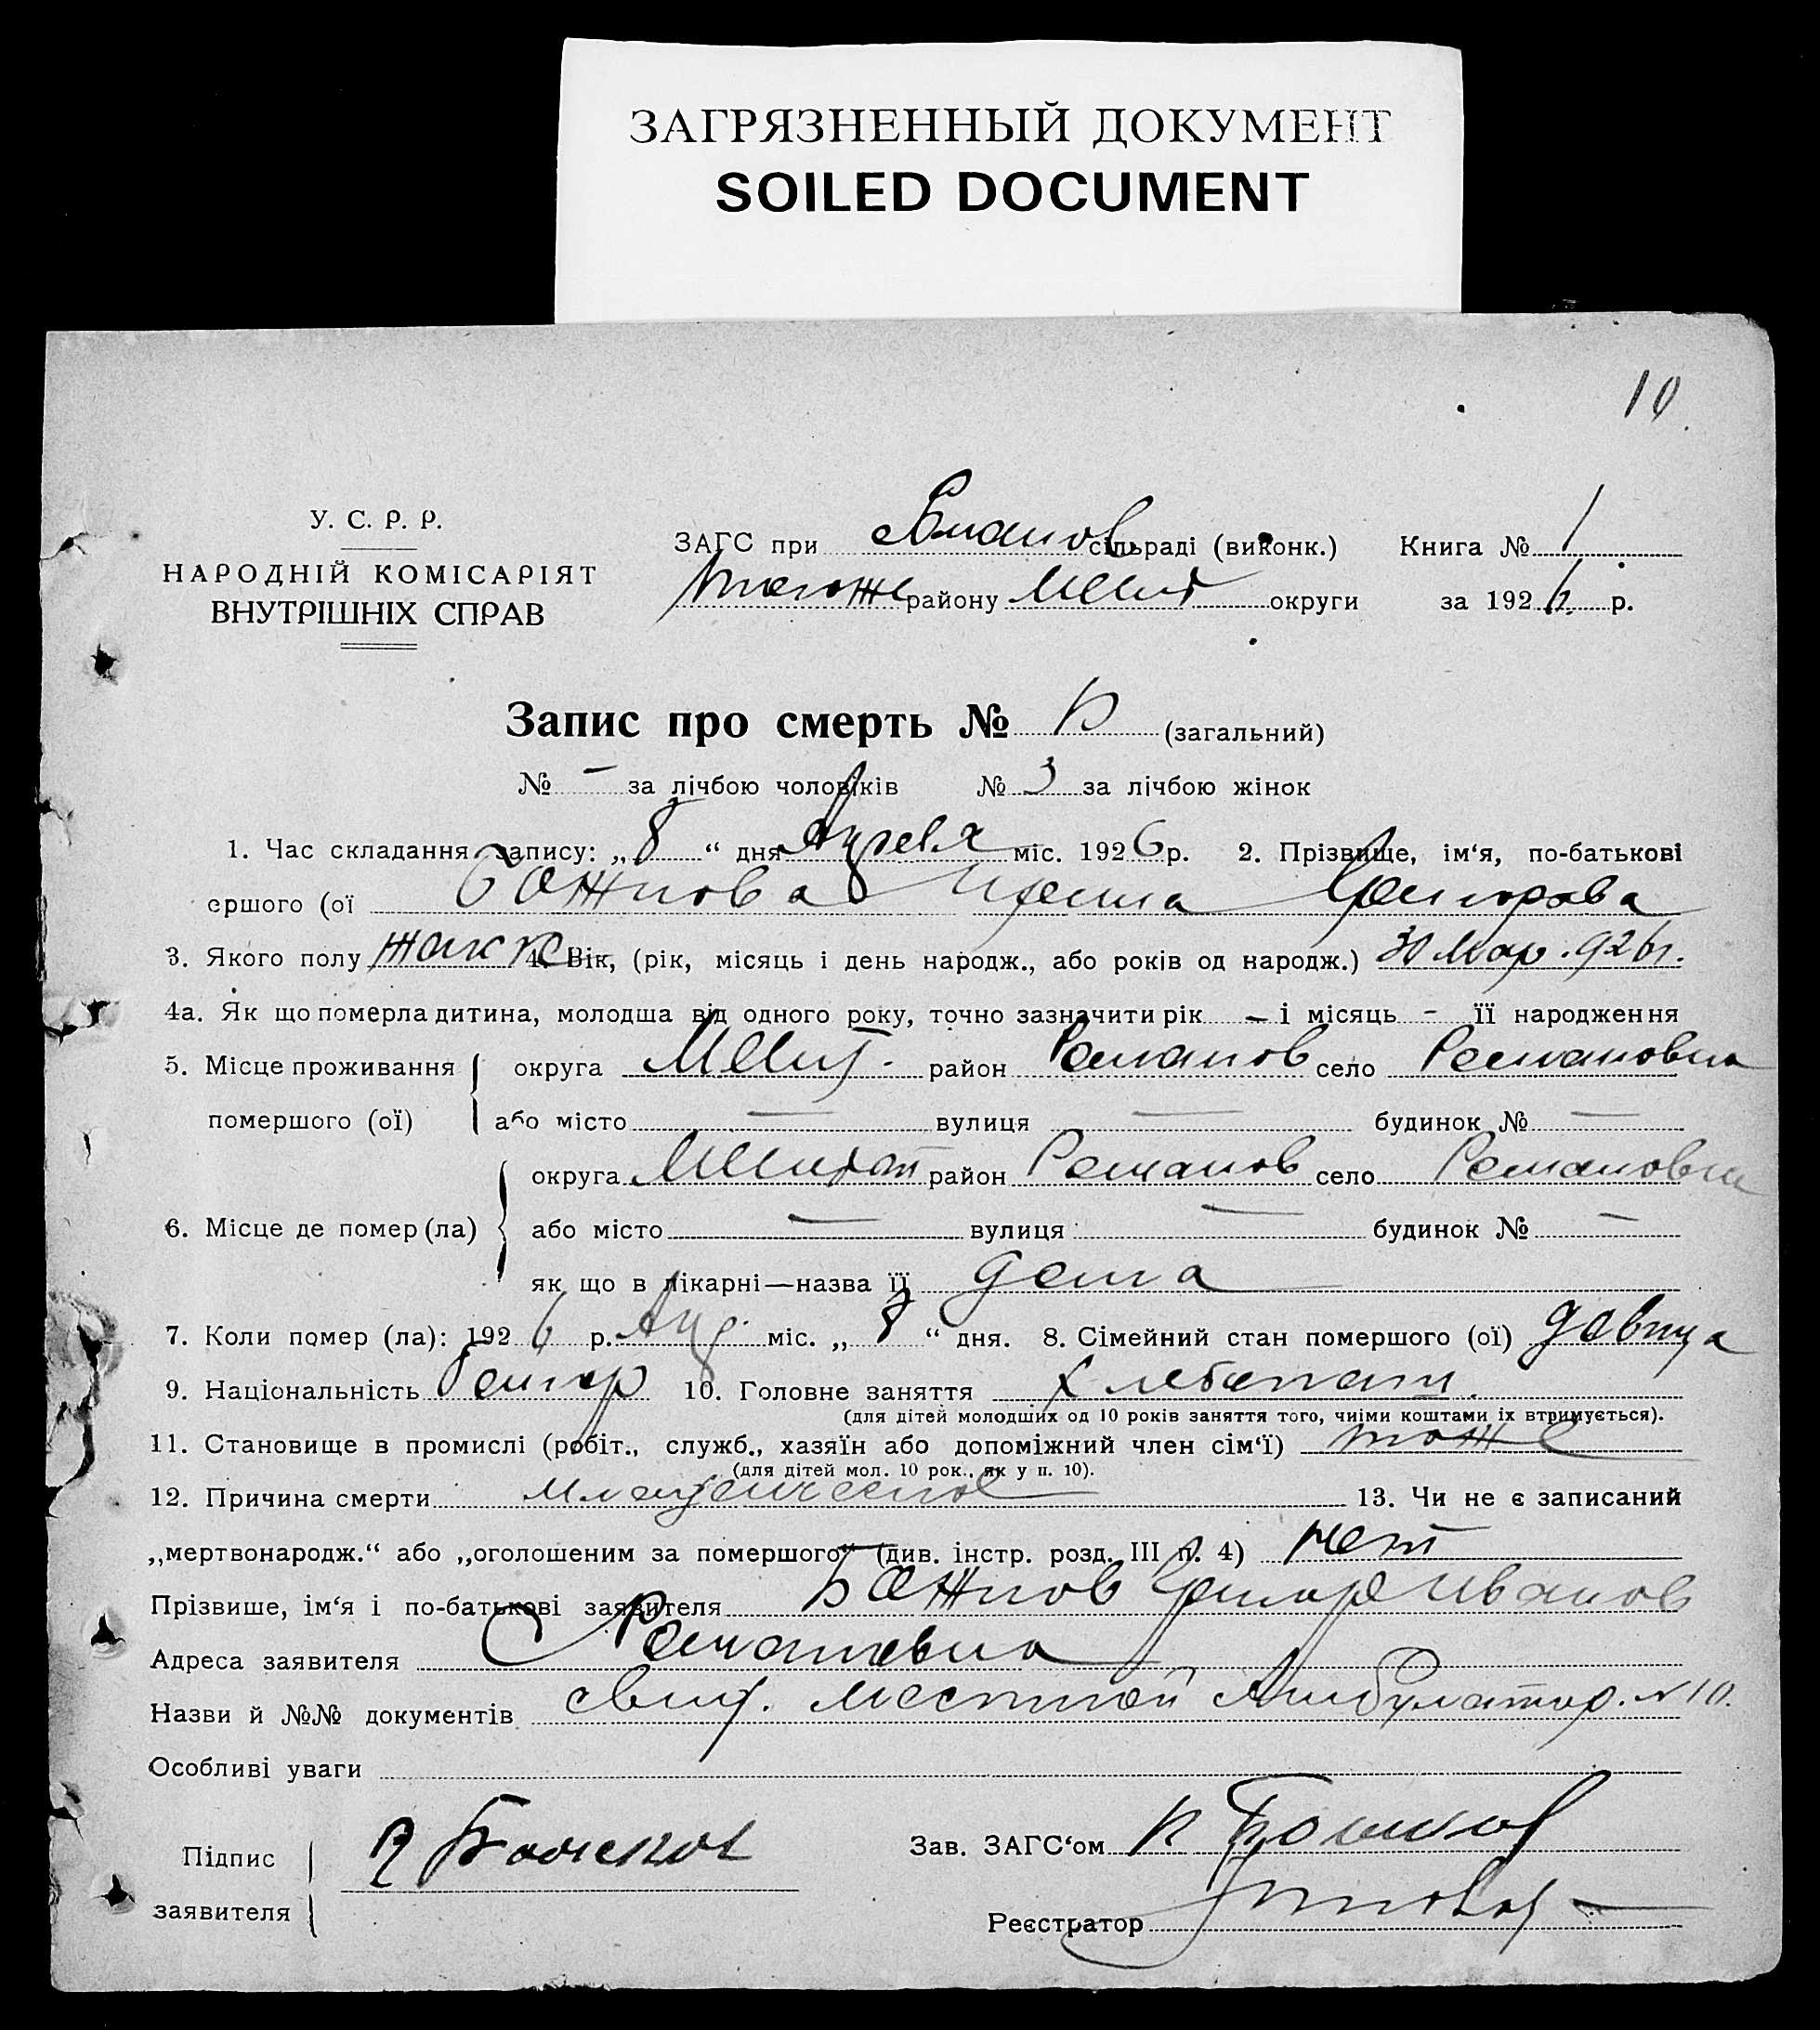 ЗАГРЯЗНЕННЫЙ ДОКУМЕНТ
SOILED DOCUMENT
10
У. С. Р. Р.
НАРОДНІЙ КОМІСАРІЯТ
ВНУТРІШНІХ СПРАВ
ЗАГС при Романов сільраді (виконк.) Книга № 1
тогоже району Мелит округи за 1926 р.
Запис про смерть № (загальний)
№ — за лічбою чоловіків № 3 за лічбою жінок
1. Час складання запису: „8“ дня Апреля міс. 1926 р. 2. Прізвище, ім‘я, по-батькові
ершого (ої Божкова Григорова
3. Якого полу 4. Вік, (рік, місяць і день народж., або років од народж.) 30 Мар. 926 г.
4а. Як що померла дитина, молодша від одного року, точно зазначити рік — і місяць - її народження
5. Місце проживання округа Мелит. район Романов село Романовка
помершого (ої) або місто — вулиця — будинок № —
округа Мелитоп район Романов село Романовка
6. Місце де помер (ла) або місто — вулиця — будинок № —
як що в лікарні—назва її дома
7. Коли помер (ла): 1926 р. Апр. міс. „8“ дня. 8. Сімейний стан помершого (ої) девица
9. Національність Болгар 10. Головне заняття Хлебопаш.
(для дітей молодших од 10 років заняття того, чиїми коштами їх втримується).
11. Становище в промислі (робіт., служб., хазяїн або допоміжний член сім‘ї) тоже
(для дітей мол. 10 рок., як у п. 10).
12. Причина смерти Младенческое 13. Чи не є записаний
„мертвонародж.“ або „оголошеним за помершого“ (див. інстр. розд. III п. 4) нет
Прізвише, ім‘я і по-батькові заявителя Божков Григор Иванов
Адреса заявителя С Романовка
Назви й №№ документів свид. местной Амбулатор. № 10.
Особливі уваги
Підпис Зав. ЗАГС‘ом
заявителя Реєстратор